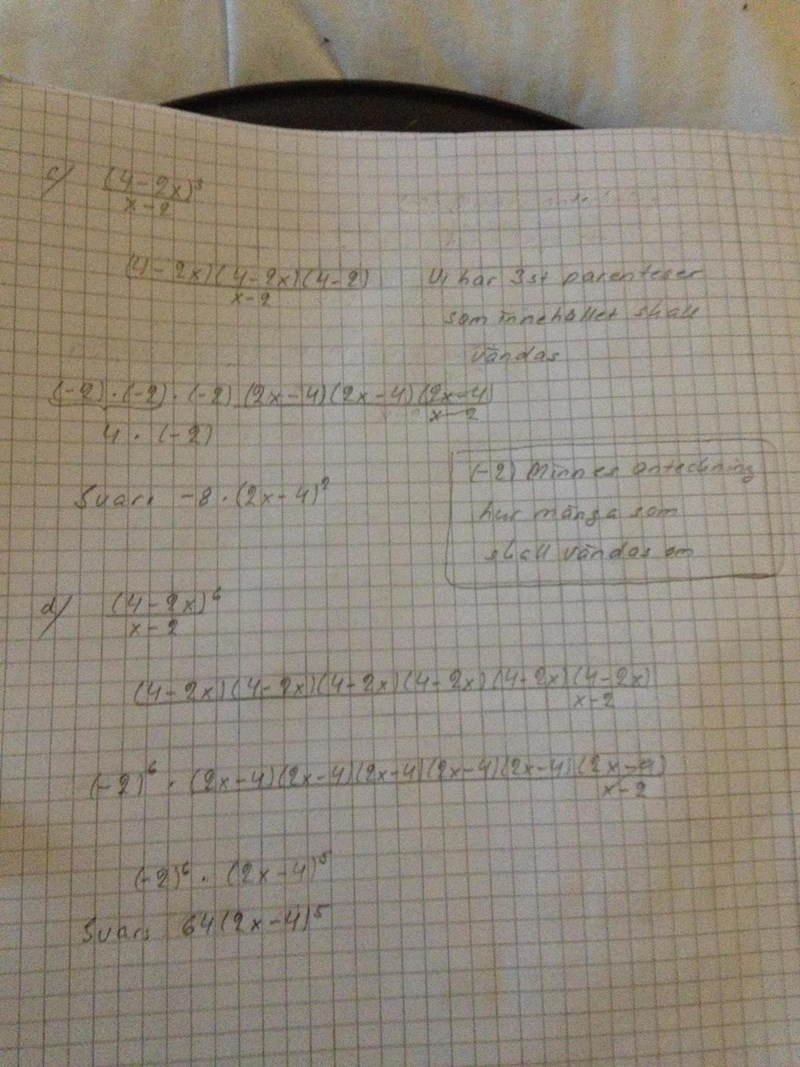 c) (4-2x)³
x-2
(4-2x)(4-2x)(4-2)
x-2
Vi har 3st parenteser
som innehållet skall
vändas
(-2)·(-2)·(-2)(2x-4)(2x-4)(2x-4)
x-2
4·(-2)
Svar: -8·(2x-4)²
(-2) Minnes anteckning
hur många som
skall vändas om
d) (4-2x)⁶
x-2
(4-2x)(4-2x)(4-2x)(4-2x)(4-2x)(4-2x)
x-2
(-2)⁶·(2x-4)(2x-4)(2x-4)(2x-4)(2x-4)(2x-4)
x-2
(-2)⁶·(2x-4)⁵
Svar: 64(2x-4)⁵